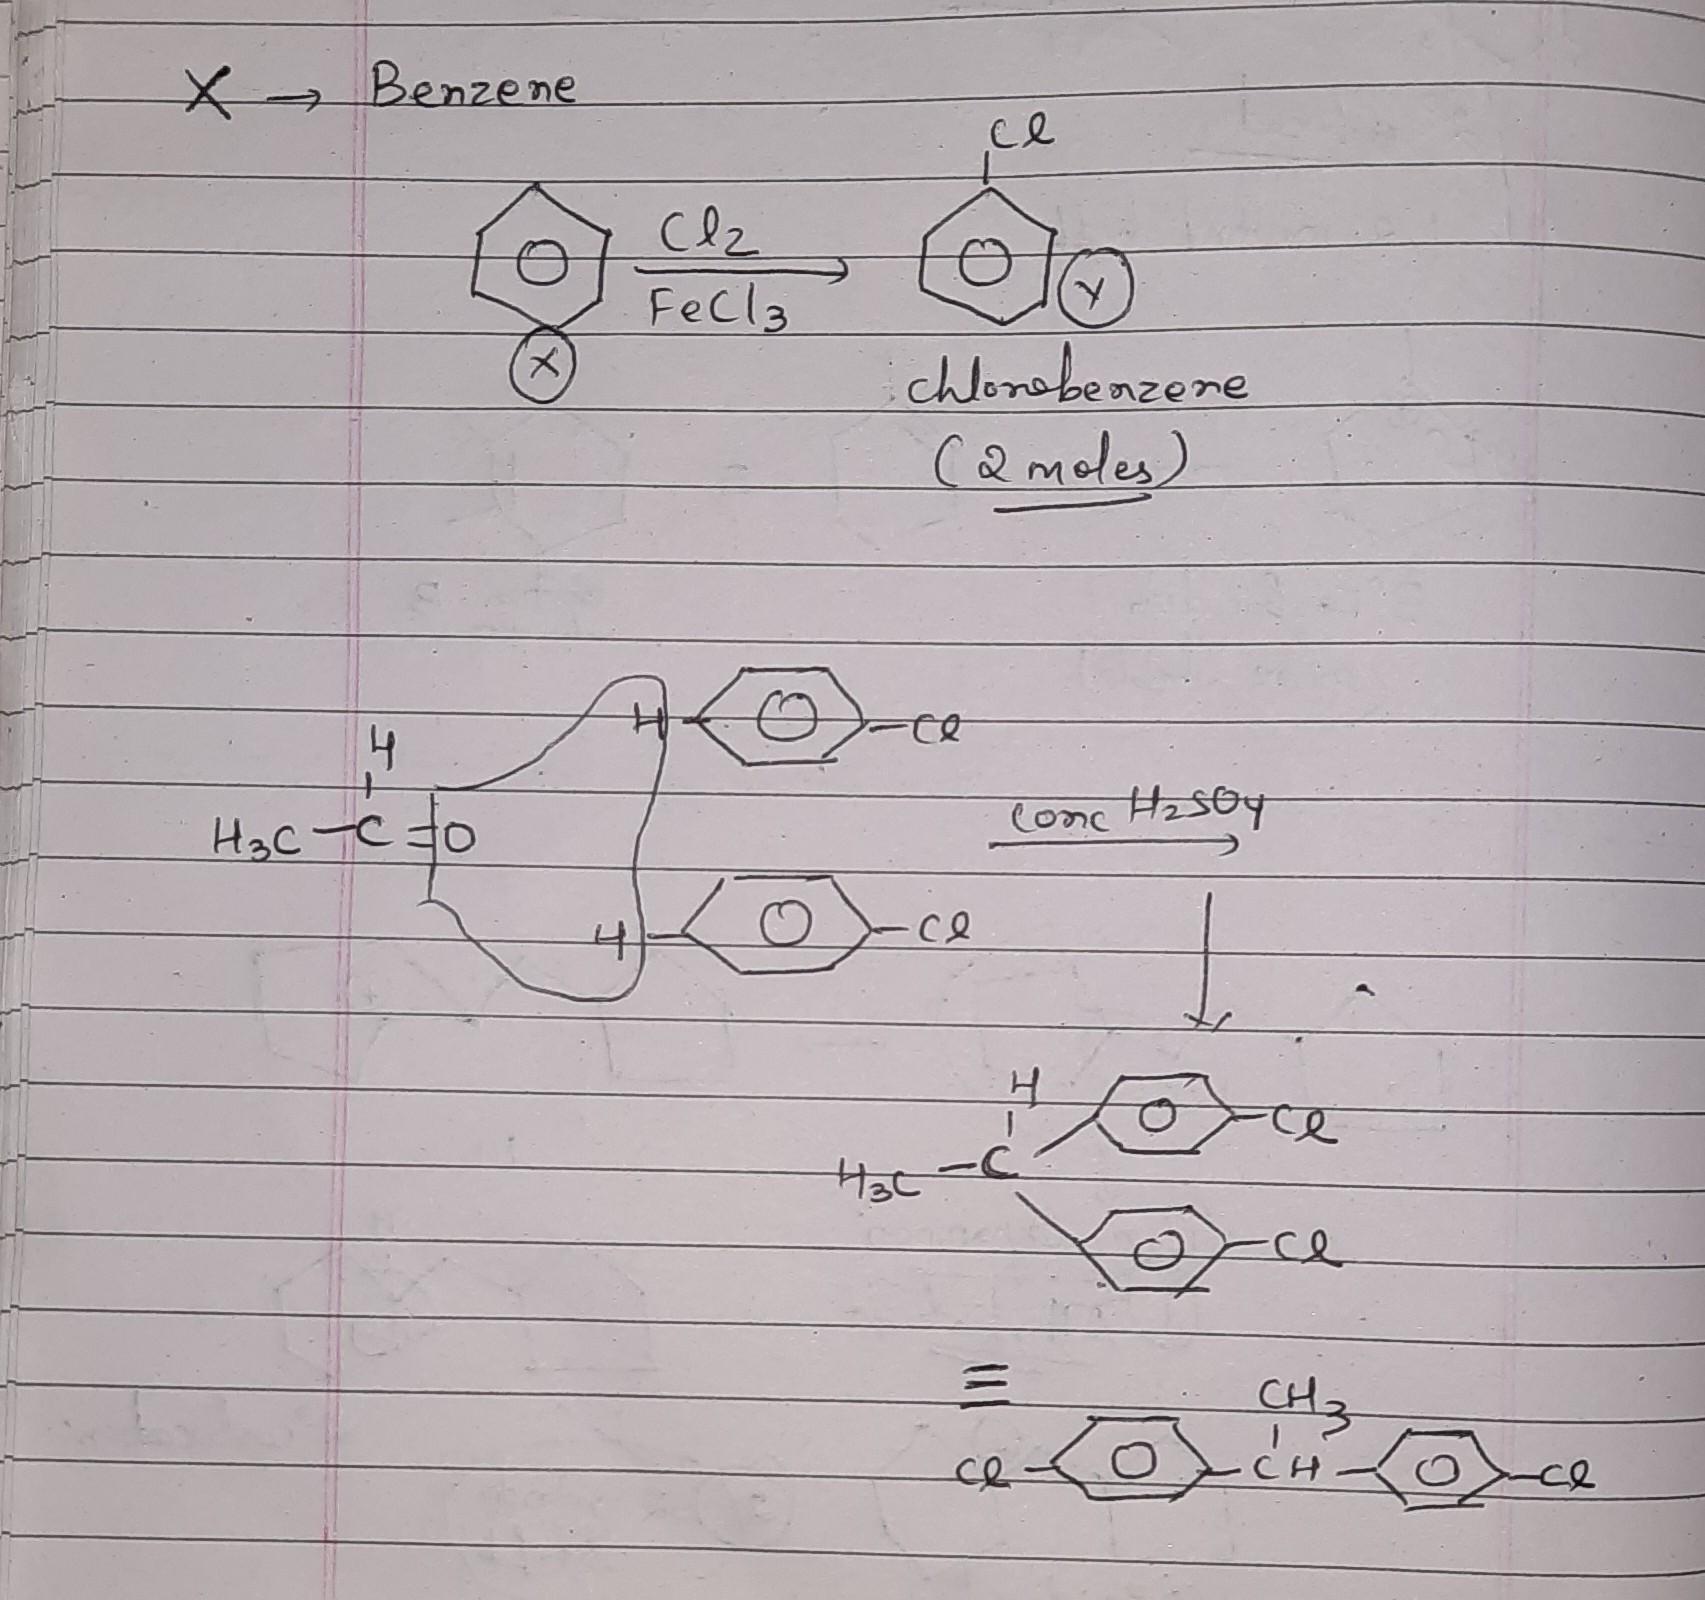 X → Benzene
Cl
Cl2
FeCl3
X
Y
chlorobenzene
(2 moles)
H
Cl
H
H3C-C=O
conc H2SO4
H
Cl
H
Cl
H3C-C
Cl
≡
CH3
Cl
CH
Cl